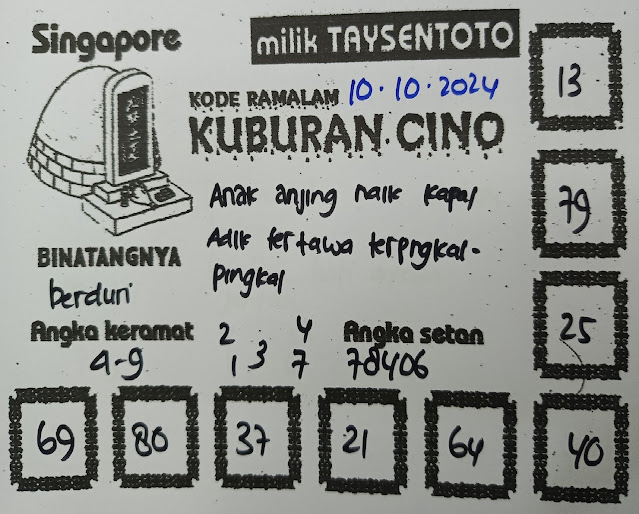 Singapore
milik TAYSENTOTO
KODE RAMALAM 10·10·2024
KUBURAN CINO
Anak anjing naik kapal
Adik tertawa terpngkal-
pingkal
BINATANGNYA
berduri
Angka keramat
4-9
2 4
1 3 7
Angka setan
78406
13
79
25
40
69 80 37 21 64